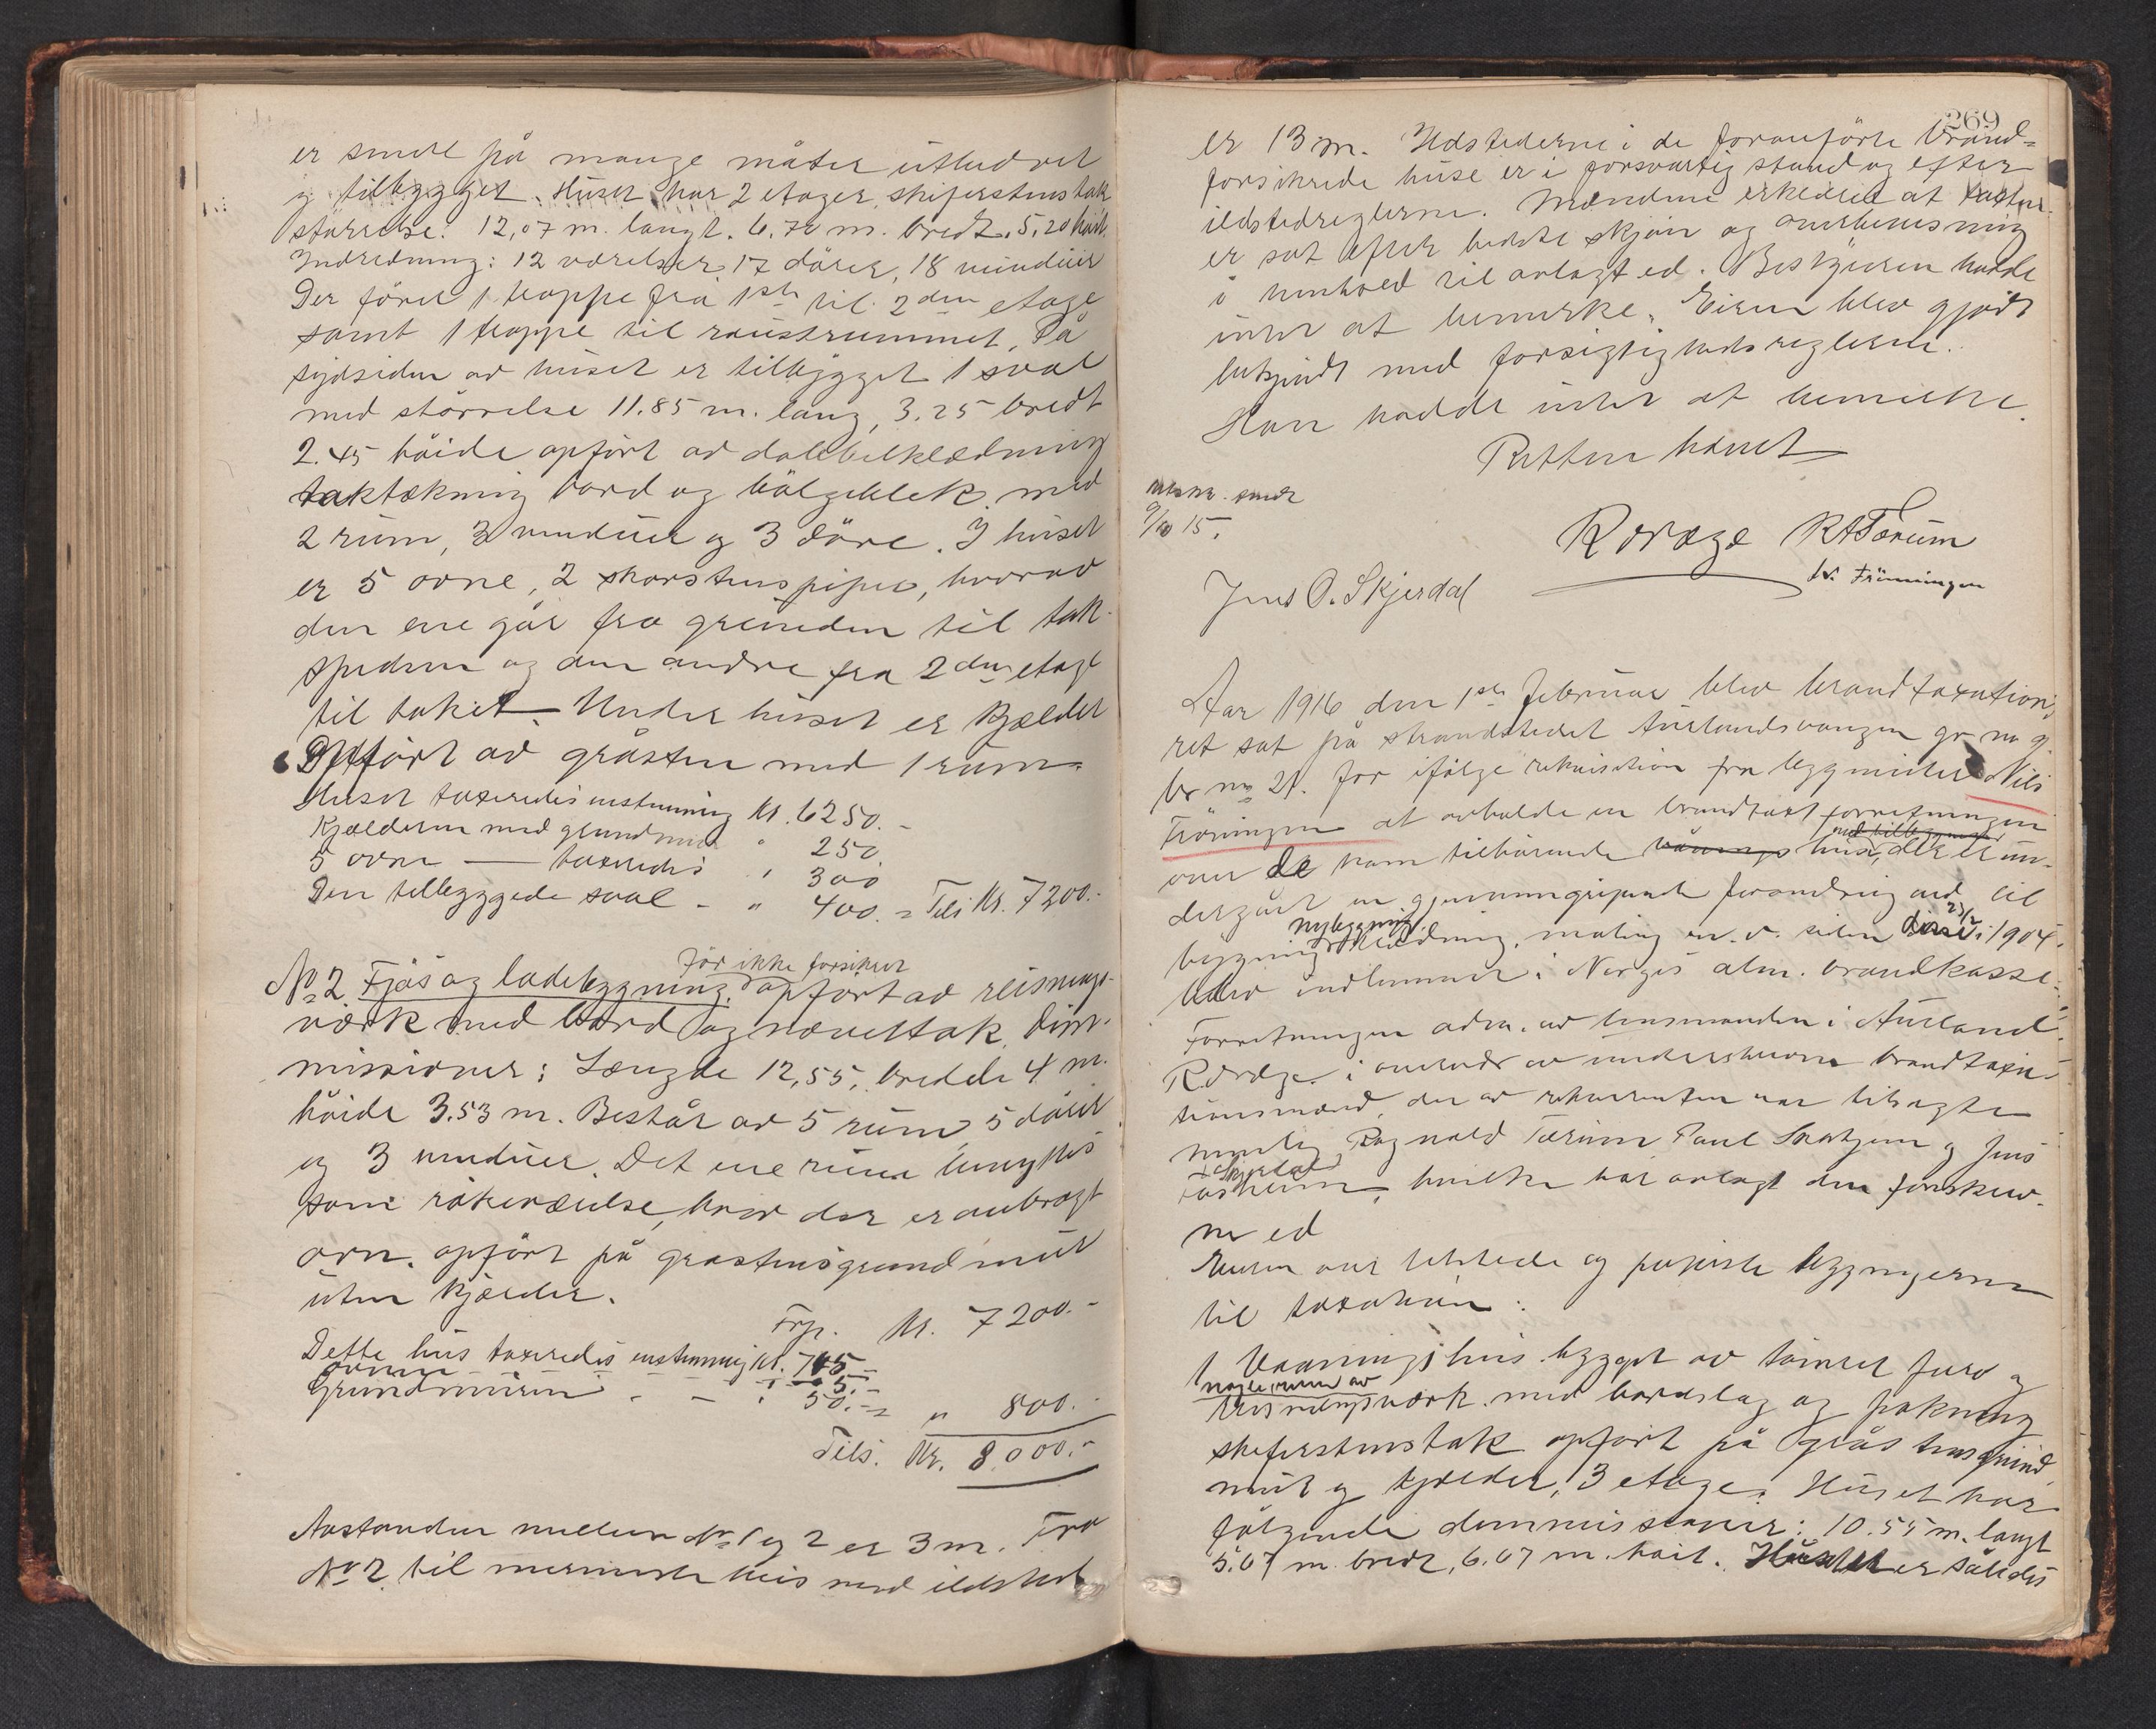 er smett på mange måter utbedret
og tilbygget. Huset har 2 etager, skiferstenstak
størrelse: 12,07 m. langt. 6,72 m. bredt. 5,20 høit.
Indredning: 12 værelser, 17 dører, 18 vinduer
Der fører 1 trappe fra 1ste til 2den etage
samt 1 trappe til raustrummet. På
sydsiden av huset er tilbygget 1 sval
med størrelse 11.85 m. lang, 3.25 bredt
2.45 høide opført av dobbelklædning
taktækning bord og bølgeblek med
2 rum, 3 vinduer og 3 døre. I huset
er 5 ovne, 2 skorstenspiper, hvorav
den ene går fra grunden til tak-
spidsen og den andre fra 2den etage
til taket. Under huset er kjælder
Opført av gråsten med 1 rum.
Huset taxeredes enstemmig kr. 6250.-
Kjælderen med grundmur " 250.
5 ovne — taxeredes " 300
Den tilbyggede sval - " 400. = Tils. Kr. 7200.-
før ikke forsikret
No 2. Fjøs og ladebygning, opført av reisnings-
værk med bord og nævertak. Dim-
missioner: Længde 12,55, bredde 4 m.
høide 3.53 m. Består av 5 rum, 5 dører
og 3 vinduer. Det ene rum benyttes
som rökeværelse, hvor der er anbragt
ovn. opført på grastensgrundmur
uten kjælder.
Frp. Kr. 7200.-
Dette hus taxeredes enstemmig kr. 745-
ovnen - - - " 5.-
Grundmuren - - " 50.- = " 800.-
Tils. Kr. 8.000.-
Avstanden mellem No 1 og 2 er 3 m. Fra
No 2 til nermeste hus med ildsted
269
er 13 m. Ildstederne i de foranførte brand-
forsikrede huse er i forsvarlig stand og efter
ildstedreglerne. Mændene erklærte at taxten
er sat efter bedste skjøn og overbevisning
i henhold til avlagt ed. Bestyreren hadde
intet at bemerke. Eieren blev gjort
bekjendt med forsigtighedsreglerne.
Han hadde intet at bemerke.
Retten hævet
sendt
9/10 15.
Rdræge RATærum
N. Frönningen
Jens O. Skjerdal
Aar 1916 den 1ste februar blev brandtaxations
ret sat på strandstedet Aurlandsvangen gr no 9
br no 21. for ifølge rekvisition fra bygmester Nils
Fröningen at avholde en brandtaxt forretningen
med tilbygninger
over de ham tilhørende vånings huse, der er un-
dergåt en gjennemgripende forandring med til
nybygning 23/2
bygning, klædning, maling m. v. siden disse i 1904
blev indlemmet i Norges alm. brandkasse.
Forretningen adm. av lensmanden i Aurland
R. Dræge i overvær av underskrevne brandtaxa-
tionsmænd, der av rekvirenten var tilsagte
nemlig Ragnvald Tærum Paul og Jens
Skjerdal
hvilke har avlagt den foreskrev-
ne ed
Eieren var tilstede og paaviste bygningerne
til taxation:
1 Vaaningshus bygget av tømret furu og
nogle rum av
reisningsværk med bordslag og pakning
skiferstenstak opført på gråstensgrund
mur og kjælder, 3 etager. Huset har
følgende dimmissioner: 10.55 m. langt
5.07 m. bredt, 6.07 m. høit. Huset er således